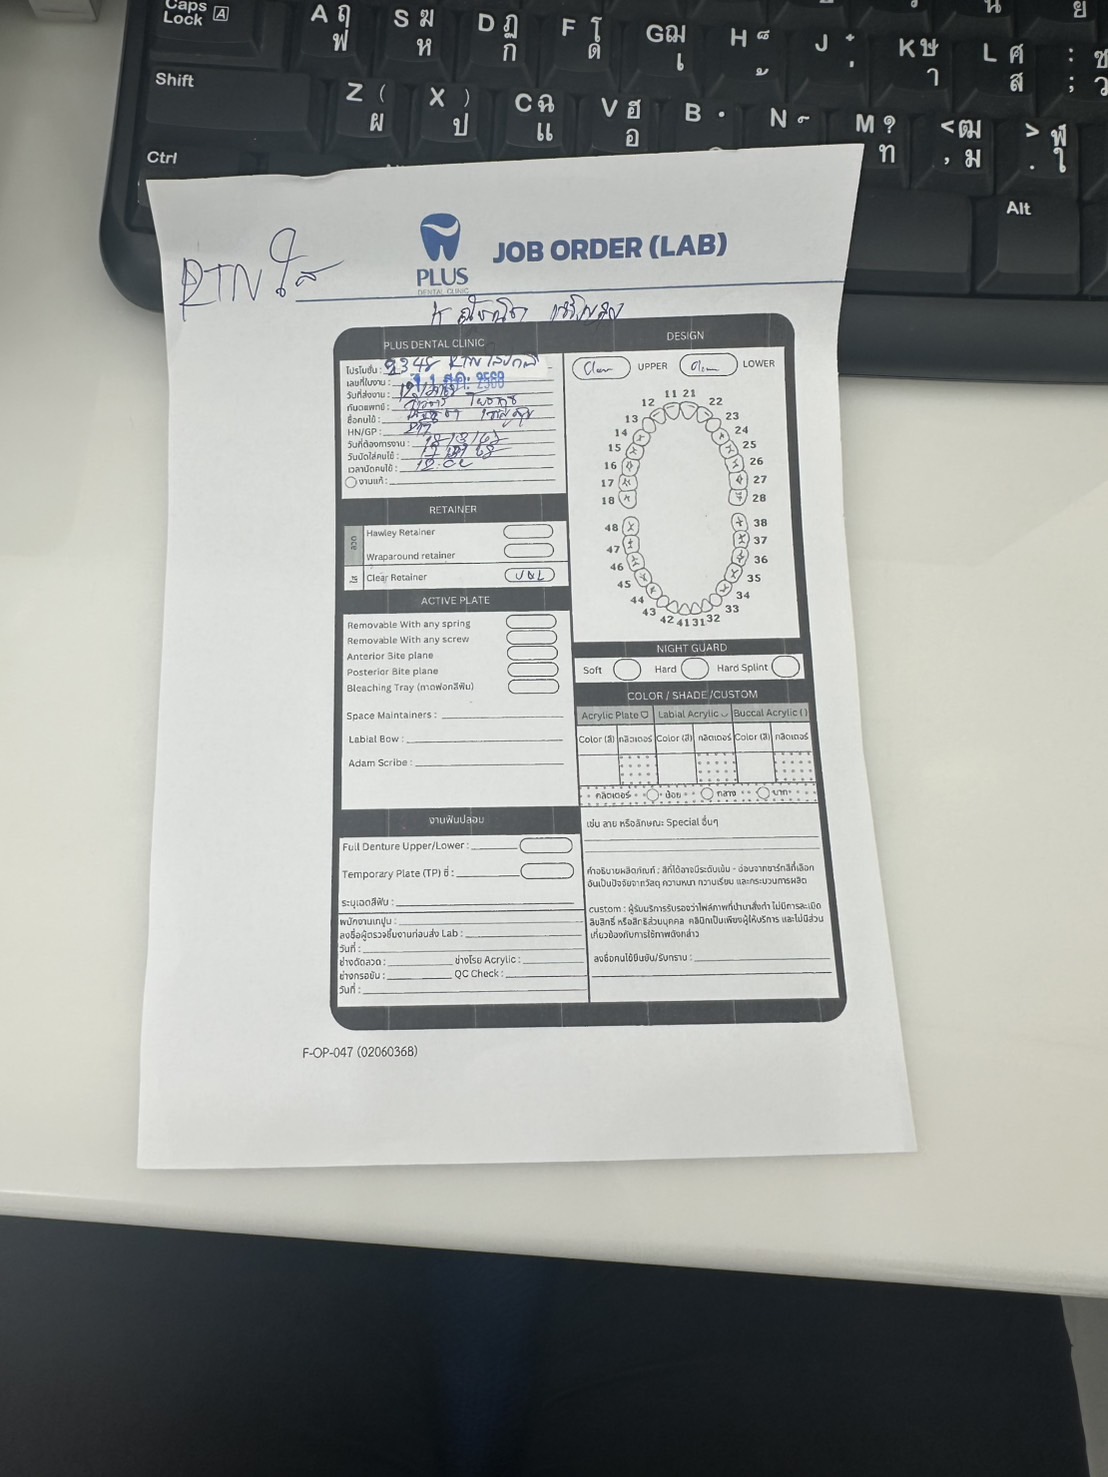 Caps Lock A
A ฤ ฟ
S ฆ ห
D ฏ ก
F โ ด
G ฌ เ
H ็ ้
J ๋ ่
K ษ า
L ศ ส
: ซ ; ว
Shift
Z ( ผ
X ) ป
C ฉ แ
V ฮ อ
B
N
M ? ท
< ฒ , ม
> ฬ . ใ
Ctrl
Alt
RTN ใส
PLUS
DENTAL CLINIC
JOB ORDER (LAB)
PLUS DENTAL CLINIC
โปรโมชั่น : 2348 RTN
เลขที่ใบงาน : 2568
วันที่ส่งงาน :
ทันตแพทย์ :
ชื่อคนไข้ :
HN/GP :
วันที่ต้องการงาน :
วันนัดใส่คนไข้ :
เวลานัดคนไข้ :
งานแก้ :
RETAINER
ลวด
Hawley Retainer
Wraparound retainer
ใส
Clear Retainer U&L
ACTIVE PLATE
Removable With any spring
Removable With any screw
Anterior Bite plane
Posterior Bite plane
Bleaching Tray (ถาดฟอกสีฟัน)
Space Maintainers :
Labial Bow :
Adam Scribe :
งานฟันปลอม
Full Denture Upper/Lower :
Temporary Plate (TP) ซี่ :
ระบุเฉดสีฟัน :
พนักงานเทปูน :
ลงชื่อผู้ตรวจชิ้นงานก่อนส่ง Lab :
วันที่ :
ช่างดัดลวด : ช่างโรย Acrylic :
ช่างกรอขัด : QC Check :
วันที่ :
DESIGN
Clear UPPER Clear LOWER
11 21
12 22
13 23
14 24
15 25
16 26
17 27
18 28
48 38
47 37
46 36
45 35
44 34
43 33
42 41 31 32
NIGHT GUARD
Soft Hard Hard Splint
COLOR / SHADE /CUSTOM
Acrylic Plate Labial Acrylic Buccal Acrylic ( )
Color (สี) กลิตเตอร์ Color (สี) กลิตเตอร์ Color (สี) กลิตเตอร์
กลิตเตอร์ น้อย กลาง มาก
เช่น ลาย หรือลักษณะ Special อื่นๆ
คำอธิบายผลิตภัณฑ์ : สีที่ได้อาจมีระดับเข้ม - อ่อนจากชาร์ทสีที่เลือก
อันเป็นปัจจัยจากวัสดุ ความหนา ความเรียบ และกระบวนการผลิต
custom : ผู้รับบริการรับรองว่าไฟล์ภาพที่นำมาสั่งทำ ไม่มีการละเมิด
ลิขสิทธิ์ หรือสิทธิส่วนบุคคล คลินิกเป็นเพียงผู้ให้บริการ และไม่มีส่วน
เกี่ยวข้องกับการใช้ภาพดังกล่าว
ลงชื่อคนไข้ยืนยัน/รับทราบ :
F-OP-047 (02060368)